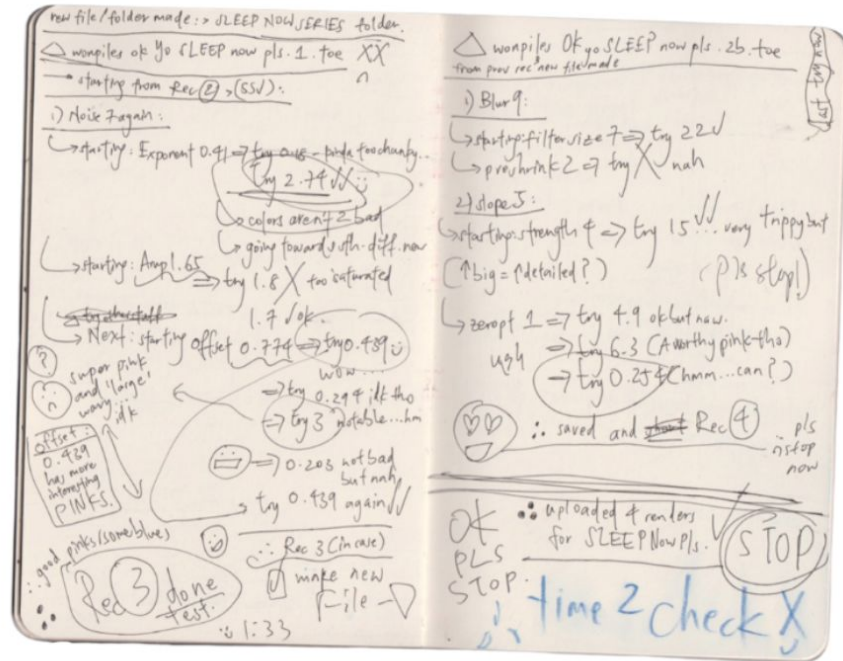 new file/folder made :> SLEEP NOW SERIES folder.
△ wonpiles ok yo SLEEP now pls. 1. toe XX
starting from Rec ② > (SSV):
1) Noise 7 again:
starting: Exponent 0.41 => try 0.18 - kinda too chunky...
try 2.74 ✓✓
colors aren't 2 bad
going towards sth. diff. now
starting: Amp 1.65
=> try 1.8 X too saturated
1.7 ✓ ok.
Next: starting offset 0.774 => try 0.439
wow...
super pink
and 'large'
wavy...
idk
=> try 0.294 idk tho
=> try 3 notable...hm
=> 0.203 not bad
but nah
try 0.439 again ✓✓
offset:
0.439
has more
interesting
PINKS.
∴ good pinks/some blues
Rec 3 done
test.
∴ Rec 3 (in case)
make new
File
1:33
△ wonpiles OK yo SLEEP now pls. 2b. toe
from prev rec³ new file made
last try now
1) Blur 9:
starting: filter size 7 => try 22 ✓
preshrink 2 => try X nah
2) slope 5:
starting: strength 4 => try 15 ✓✓... very trippy but
(↑big = ↑detailed?)
(pls stop!)
zeropt 1 => try 4.9 ok but naw.
ugh
=> try 6.3 (A worthy pink-tho)
=> try 0.254 (hmm...can?)
∴ saved and Rec ④
pls
stop
now
∴ uploaded 4 renders
for SLEEP Now Pls. ✓
OK
PLS
STOP.
STOP
time 2 check X